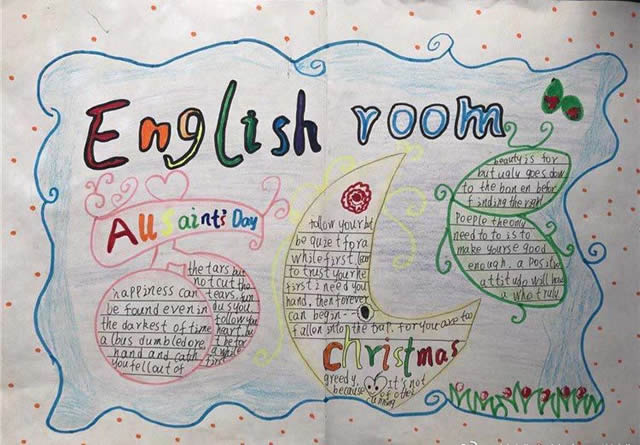 English room
All Saint's Day
happiness can
be found even in
the darkest of time
albus dumbledore
hand and catch
you fell out of
the tars but
not cut the
tears. fun
ous you
follow you
heart. be
t be for
a while
first
follow your
be quiet for a
while first. lear
to trust you he
first i need you
hand, then forever
can begin --
fallen into the trap. for you are too
christmas
greedy. It's not
because of other
cunning
beauty is for
but ualy goes dow
to the bon en befor
finding the righ
Poeple the only
need to to is to
make yourse good
enough, a positive
attitude will have
a who truly